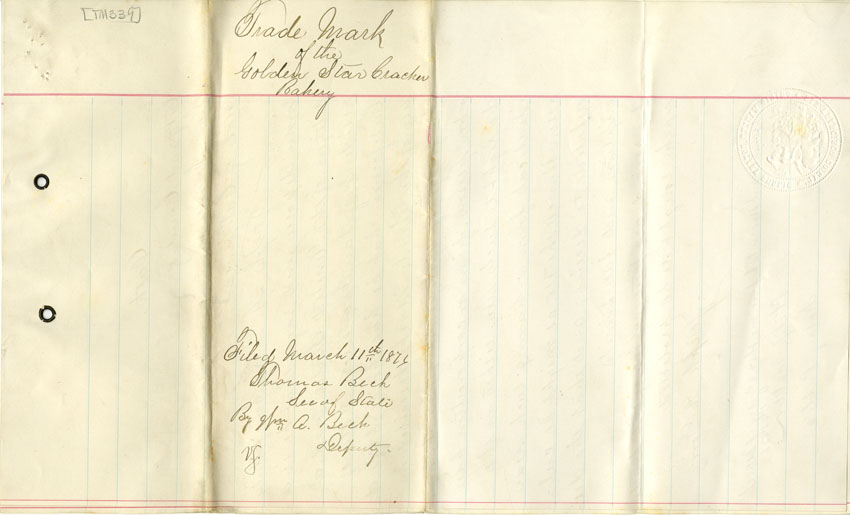 [TM339]
Trade Mark
of the
Golden Star Cracker
Bakery
Filed March 11th 1876
Thomas Beck
Sec of State
By Wm A. Beck
Deputy.